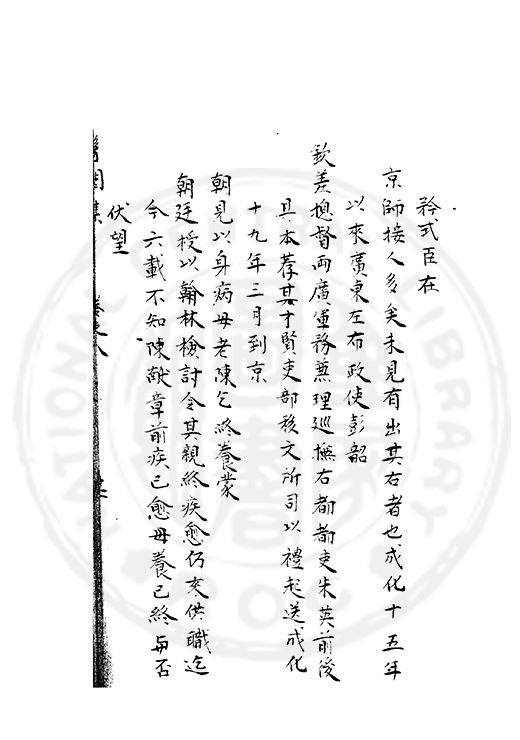 矜式臣在
京師接人多矣未見有出其右者也成化十五年
以來廣東左布政使彭韶
欽差揔督兩廣軍務兼理巡撫右都都吏朱英前後
具本荐其才賢吏部移文所司以禮起送成化
十九年三月到京
朝見以身病母老陳乞終養蒙
朝廷授以翰林檢討令其親終疾愈仍來供職迄
今六載不知陳獻章前疾已愈母養已終與否
伏望
醫閭集